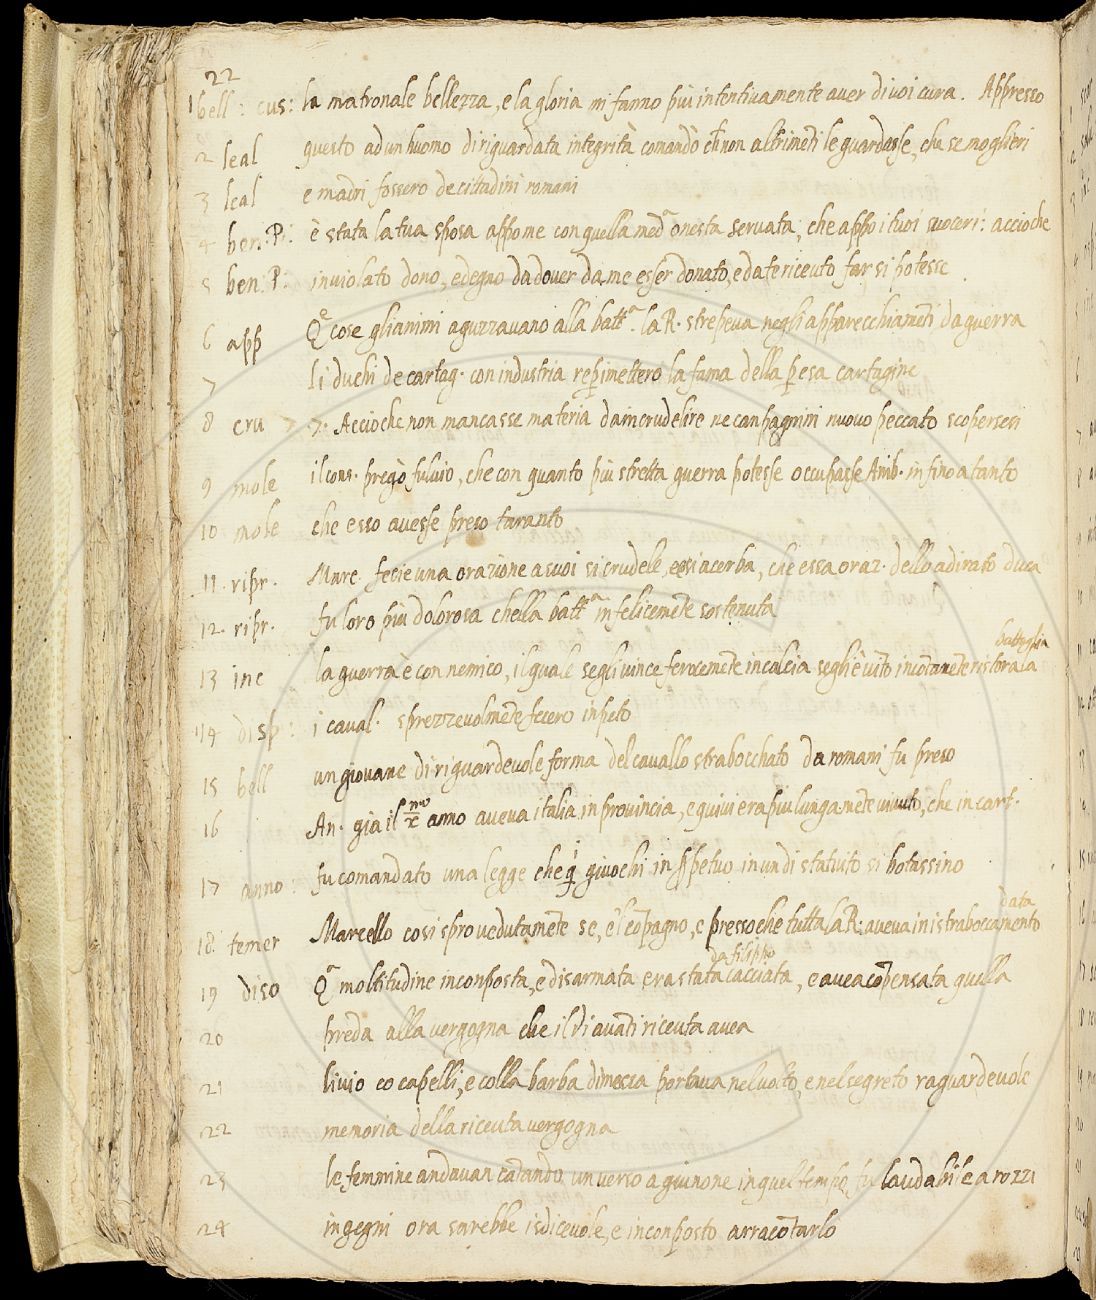 22
1 bell: cus: la matronale bellezza, e la gloria mi fanno più intentivamente aver di voi cura. Appresso
2 leal questo ad un huomo di riguardata integrità comandò che non altrimēti le guardasse, che se moglieri
3 leal e madri fossero de cittadini romani
4 ben: P: è stata la tua sposa appo me con quella medª onesta servata, che appo i tuoi suoceri: accioche
5 ben: P: inviolato dono, e degno da dover da me esser donato, e da te riceuto far si potesse
6 app Qᵉ cose gli animi aguzzavano alla battª. la R. strepeva negli apparecchiamēti da guerra
7 li duchi de cartag. con industria rep̱imettero la fama della p̱esa cartagine
8 cru 7. Accioche non mancasse materia da incrudelire ne canpagnini nuovo peccato scopersesi
9 mole il cons. pregò fulvio, che con quanto più stretta guerra potesse occupasse Anib. infino a tanto
10 mole che esso avesse preso taranto
11. ripr. Marc. fecie una orazione a suoi si crudele, e si acerba, che essa oraz. dello adirato duca
12. ripr. fu loro più dolorosa chella battª infelicemēte sostenuta
battaglia
13 inc la guerra è con nemico, il quale se gli vince ferocemēte incalcia se gli è vīto incōtanēte ristora la
14 disp: i caval. sprezzevolmēte fecero inpeto
15 bell un giovane di riguardevole forma del cavallo strabocchato da romani fu preso
16 An. già il x̄ᵐᵒ anno aveva italia in provincia, e quivi era più lungamēte vivuto, che in cart.
17 anno: fu comandato una legge che qⁱ giuochi in p̱petuo in un di statuito si botassino
data
18 temer Marcello cosi sprovedutamēte se, e'l cōpagno, e pressoche tutta la R: aveva in istraboccamento
da filippo
19 diso Qª moltitudine inconposta, e disarmata era stata cacciata, e avea cōpensata quella
20 preda alla vergogna che il di avāti riceuta avea
21 livio co capelli, e colla barba dimessa portava nel volto, e nel segreto raguardevole
22 memoria della riceuta vergogna
23 le femmine andavan cātando un verso a giunone in quel tempo fu laudabile a rozzi
24 ingegni ora sarebbe isdicevole, e inconposto arracōtarlo